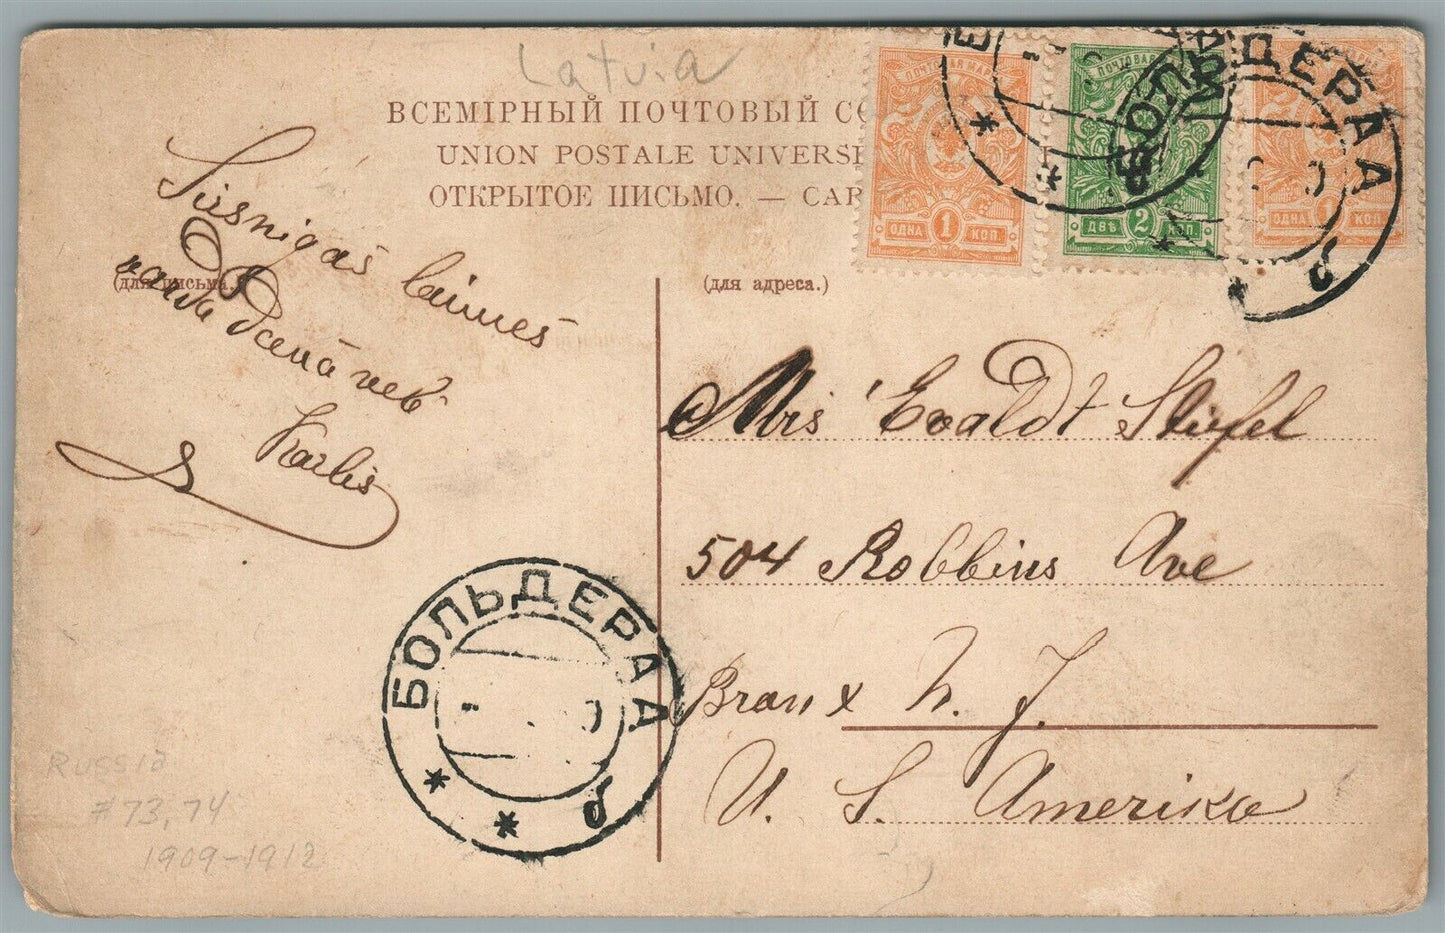 Latvia
ВСЕМІРНЫЙ ПОЧТОВЫЙ СО
UNION POSTALE UNIVERSE
ОТКРЫТОЕ ПИСЬМО. — CAR
ПОЧТОВАЯ МАРКА
ОДНА 1 КОП.
ПОЧТОВАЯ
ДВѢ 2 КОП.
ОДНА 1 КОП.
БОЛЬДЕРАА
б
(для письма.)
(для адреса.)
Sirsnigas laimes
vārda Deenā neb
Karlis
Mrs Evaldt Stiefel
504 Robbins Ave
Bronx N. J.
U. S. Amerika
БОЛЬДЕРАА
б
Russia
#73, 74
1909-1912